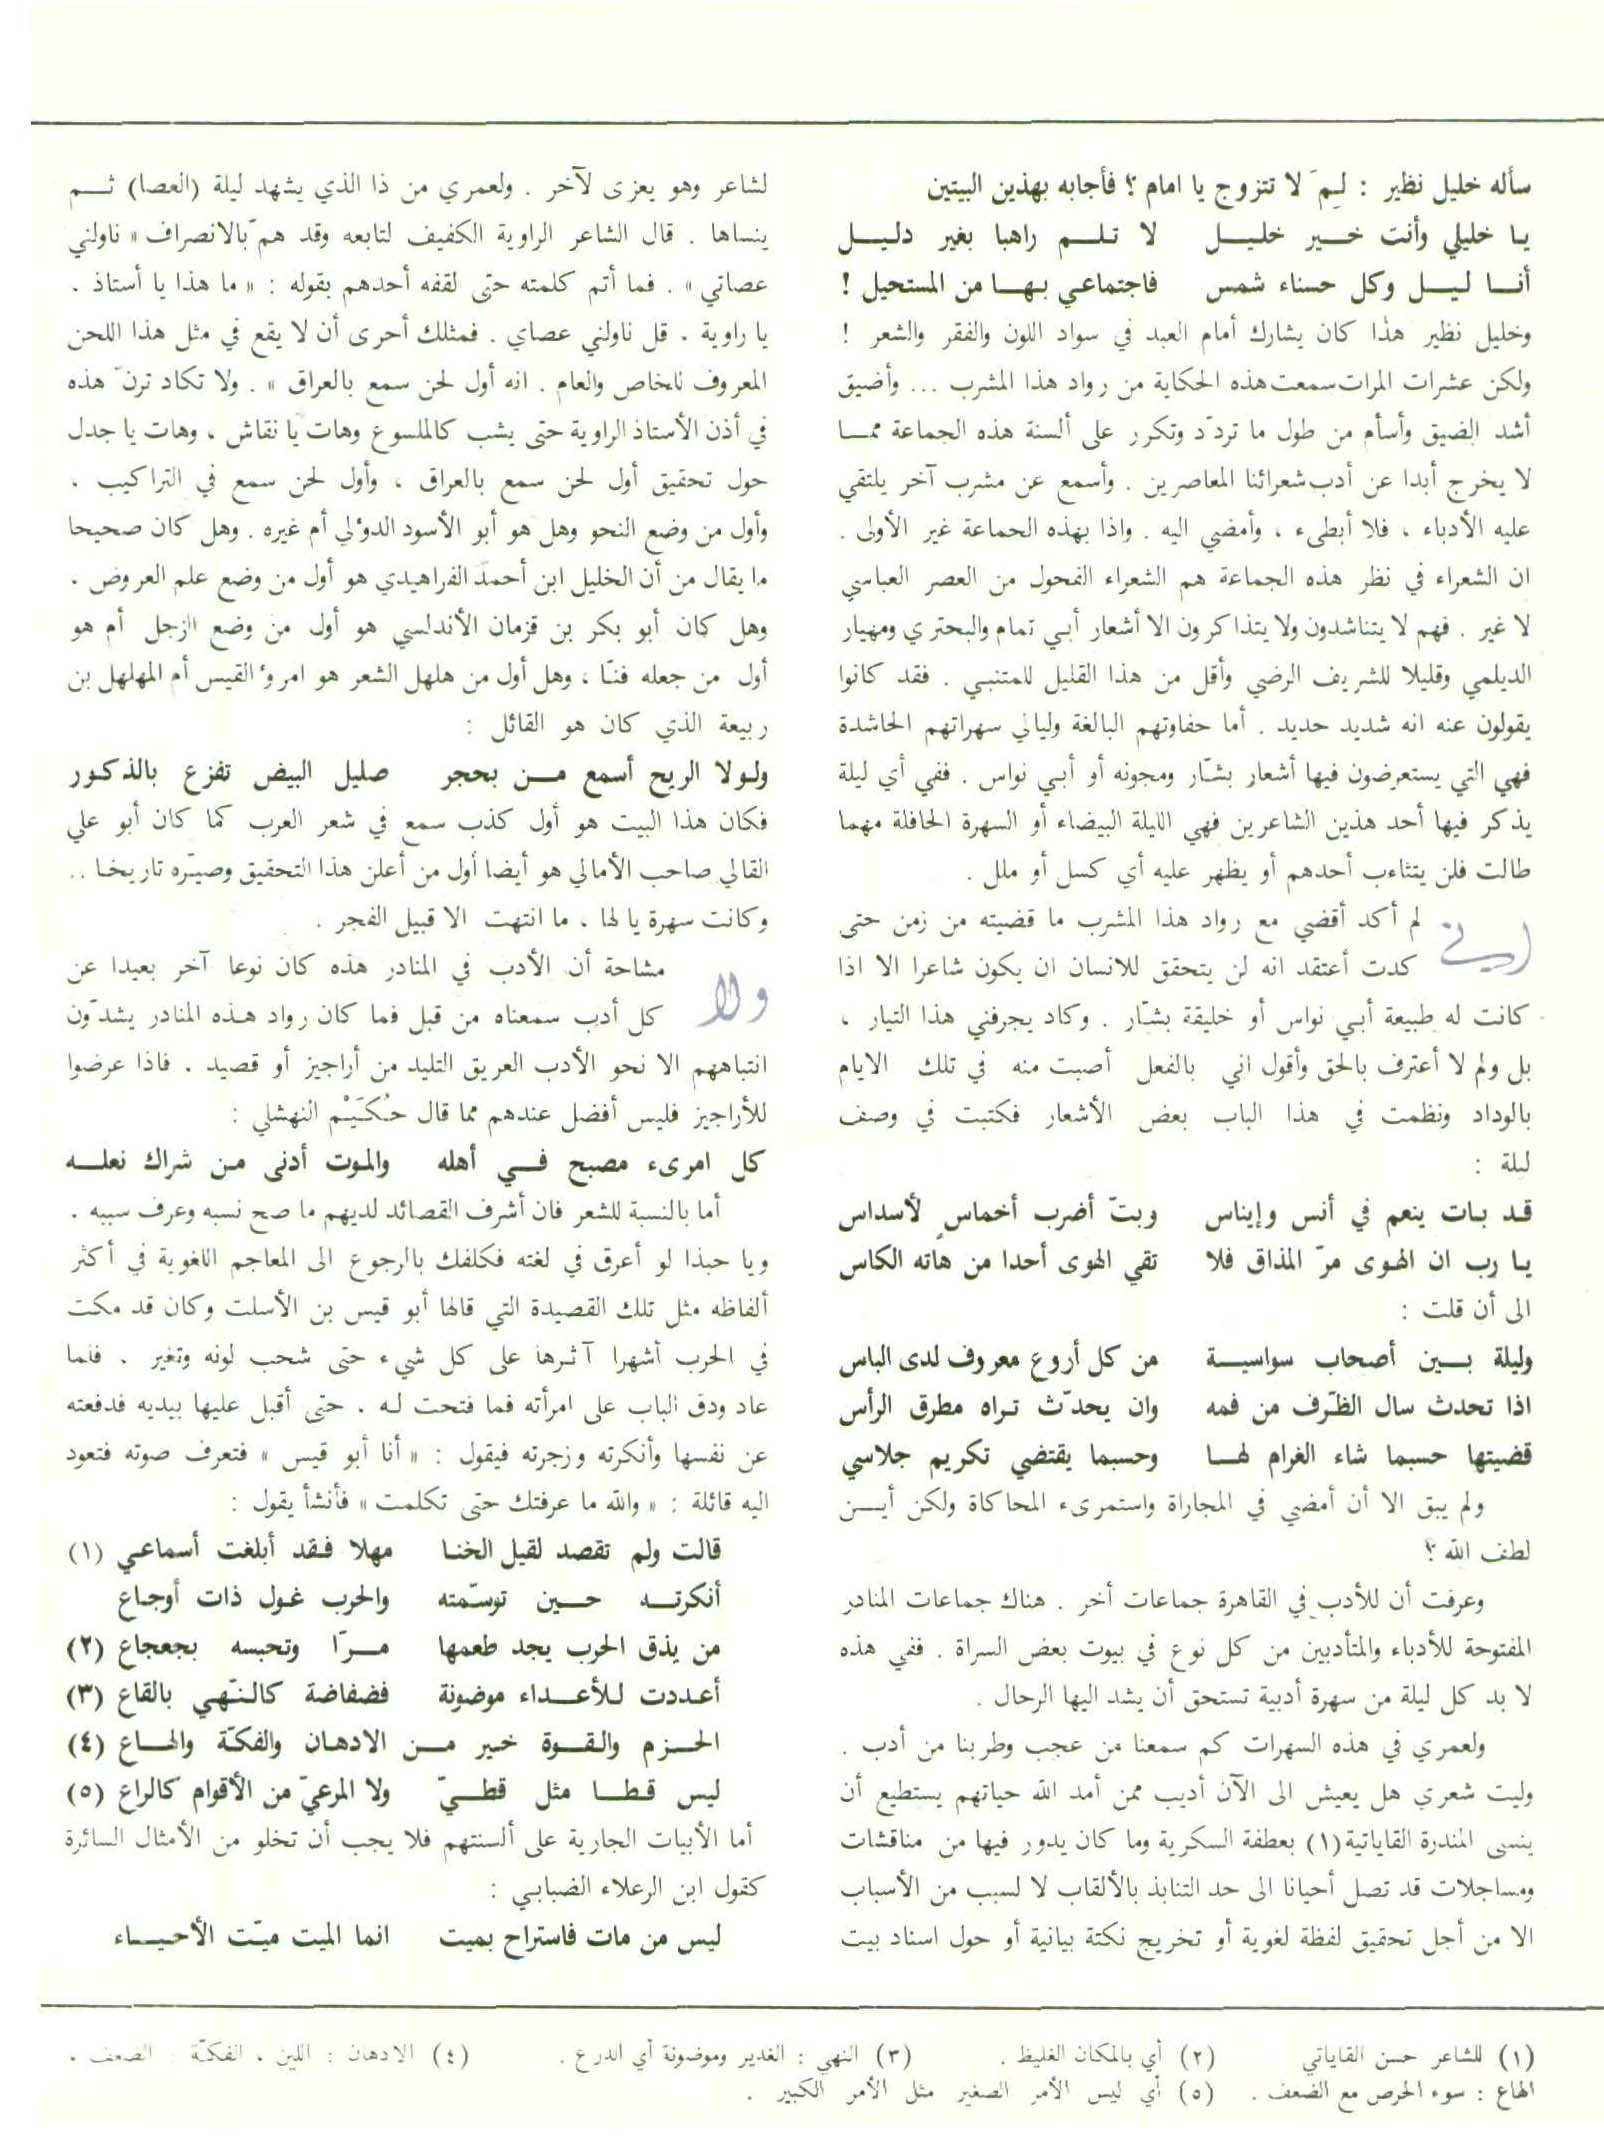 سأله خليل نظير : لِمَ لا تتزوج يا امام ؟ فأجابه بهذين البيتين
يا خليلي وأنت خير خليل لا تلم راهبا بغير دليل
أنا ليل وكل حسناء شمس فاجتماعي بها من المستحيل !
وخليل نظير هذا كان يشارك أمام العبد في سواد اللون والفقر والشعر !
ولكن عشرات المرات سمعت هذه الحكاية من رواد هذا المشرب ... وأضيق
أشد الضيق وأسأم من طول ما تردّد وتكرر على ألسنة هذه الجماعة مما
لا يخرج أبدا عن أدب شعرائنا المعاصرين . وأسمع عن مشرب آخر يلتقي
عليه الأدباء ، فلا أبطىء ، وأمضي اليه . واذا بهذه الجماعة غير الأولى .
ان الشعراء في نظر هذه الجماعة هم الشعراء الفحول من العصر العباسي
لا غير . فهم لا يتناشدون ولا يتذاكرون الا أشعار أبي تمام والبحتري ومهيار
الديلمي وقليلا للشريف الرضي وأقل من هذا القليل للمتنبي . فقد كانوا
يقولون عنه انه شديد حديد . أما حفاوتهم البالغة وليالي سهراتهم الحاشدة
فهي التي يستعرضون فيها أشعار بشّار ومجونه أو أبي نواس . ففي أي ليلة
يذكر فيها أحد هذين الشاعرين فهي الليلة البيضاء أو السهرة الحافلة مهما
طالت فلن يتثاءب أحدهم أو يظهر عليه أي كسل أو ملل .
إنني لم أكد أقضي مع رواد هذا المشرب ما قضيته من زمن حتى
كدت أعتقد انه لن يتحقق للانسان ان يكون شاعرا الا اذا
كانت له طبيعة أبي نواس أو خليقة بشّار . وكاد يجرفني هذا التيار ،
بل ولم لا أعترف بالحق وأقول اني بالفعل أصبت منه في تلك الايام
بالوداد ونظمت في هذا الباب بعض الأشعار فكتبت في وصف
ليلة :
قد بات ينعم في أنس وإيناس وبتّ أضرب أخماسٍ لأسداس
يا رب ان الهوى مرّ المذاق فلا تقي الهوى أحدا من هاته الكاس
الى أن قلت :
وليلة بين أصحاب سواسية من كل أروع معروف لدى الباس
اذا تحدث سال الظّرف من فمه وان يحدّث تراه مطرق الرأس
قضيتها حسبما شاء الغرام لها وحسبما يقتضي تكريم جلاسي
ولم يبق الا أن أمضي في المجاراة واستمرىء المحاكاة ولكن أين
لطف الله ؟
وعرفت أن للأدب في القاهرة جماعات أخر . هناك جماعات المنادر
المفتوحة للأدباء والمتأدبين من كل نوع في بيوت بعض السراة . ففي هذه
لا بد كل ليلة من سهرة أدبية تستحق أن يشد اليها الرحال .
ولعمري في هذه السهرات كم سمعنا من عجب وطربنا من أدب .
وليت شعري هل يعيش الى الآن أديب ممن أمد الله حياتهم يستطيع أن
ينسى المندرة القاياتية (١) بعطفة السكرية وما كان يدور فيها من مناقشات
ومساجلات قد تصل أحيانا الى حد التنابذ بالألقاب لا لسبب من الأسباب
الا من أجل تحقيق لفظة لغوية أو تخريج نكتة بيانية أو حول اسناد بيت
لشاعر وهو يعزى لآخر . ولعمري من ذا الذي يشهد ليلة (العصا) ثم
ينساها . قال الشاعر الراوية الكفيف لتابعه وقد همّ بالانصراف « ناولني
عصاتي » . فما أتم كلمته حتى لقفه أحدهم بقوله : « ما هذا يا أستاذ .
يا راوية . قل ناولني عصاي . فمثلك أحرى أن لا يقع في مثل هذا اللحن
المعروف للخاص والعام . انه أول لحن سمع بالعراق » . ولا تكاد ترنّ هذه
في أذن الأستاذ الراوية حتى يشب كالملسوع وهات يا نقاش ، وهات يا جدل
حول تحقيق أول لحن سمع بالعراق ، وأول لحن سمع في التراكيب ،
وأول من وضع النحو وهل هو أبو الأسود الدوئلي أم غيره . وهل كان صحيحا
ما يقال من أن الخليل ابن أحمد الفراهيدي هو أول من وضع علم العروض .
وهل كان أبو بكر بن قزمان الأندلسي هو أول من وضع الزجل أم هو
أول من جعله فنّا ، وهل أول من هلهل الشعر هو امرؤ القيس أم المهلهل بن
ربيعة الذي كان هو القائل :
ولولا الريح أسمع من بحجر صليل البيض تفزع بالذكور
فكان هذا البيت هو أول كذب سمع في شعر العرب كما كان أبو علي
القالي صاحب الأمالي هو أيضا أول من أعلن هذا التحقيق وصيّره تاريخا ..
وكانت سهرة يا لها ، ما انتهت الا قبيل الفجر .
ولا مشاحة أن الأدب في المنادر هذه كان نوعا آخر بعيدا عن
كل أدب سمعناه من قبل فما كان رواد هذه المنادر يشدّون
انتباههم الا نحو الأدب العريق التليد من أراجيز أو قصيد . فاذا عرضوا
للأراجيز فليس أفضل عندهم مما قال حُكَيْم النهشلي :
كل امرىء مصبح في أهله والموت أدنى من شراك نعله
أما بالنسبة للشعر فان أشرف القصائد لديهم ما صح نسبه وعرف سببه .
ويا حبذا لو أعرق في لغته فكلفك بالرجوع الى المعاجم اللغوية في أكثر
ألفاظه مثل تلك القصيدة التي قالها أبو قيس بن الأسلت وكان قد مكث
في الحرب أشهرا آثرها على كل شيء حتى شحب لونه وتغير . فلما
عاد ودق الباب على امرأته فما فتحت له . حتى أقبل عليها بيديه فدفعته
عن نفسها وأنكرته وزجرته فيقول : « أنا أبو قيس » فتعرف صوته فتعود
اليه قائلة : « والله ما عرفتك حتى تكلمت » فأنشأ يقول :
قالت ولم تقصد لقيل الخنا مهلا فقد أبلغت أسماعي (١)
أنكرته حين توسّمته والحرب غول ذات أوجاع
من يذق الحرب يجد طعمها مرّا وتحبسه بجعجاع (٢)
أعددت للأعداء موضونة فضفاضة كالنّهي بالقاع (٣)
الحزم والقوة خير من الادهان والفكّة والهاع (٤)
ليس قطا مثل قطيّ ولا المرعيّ من الأقوام كالراع (٥)
أما الأبيات الجارية على ألسنتهم فلا يجب أن تخلو من الأمثال السائرة
كقول ابن الرعلاء الضبابي :
ليس من مات فاستراح بميت انما الميت ميّت الأحياء
(١) للشاعر حسن القاياتي (٢) أي بالمكان الغليظ . (٣) النهي : الغدير وموضونة أي الدرع . (٤) الادهان : اللين ، الفكّة : الضعف ،
الهاع : سوء الحرص مع الضعف . (٥) أي ليس الأمر الصغير مثل الأمر الكبير .